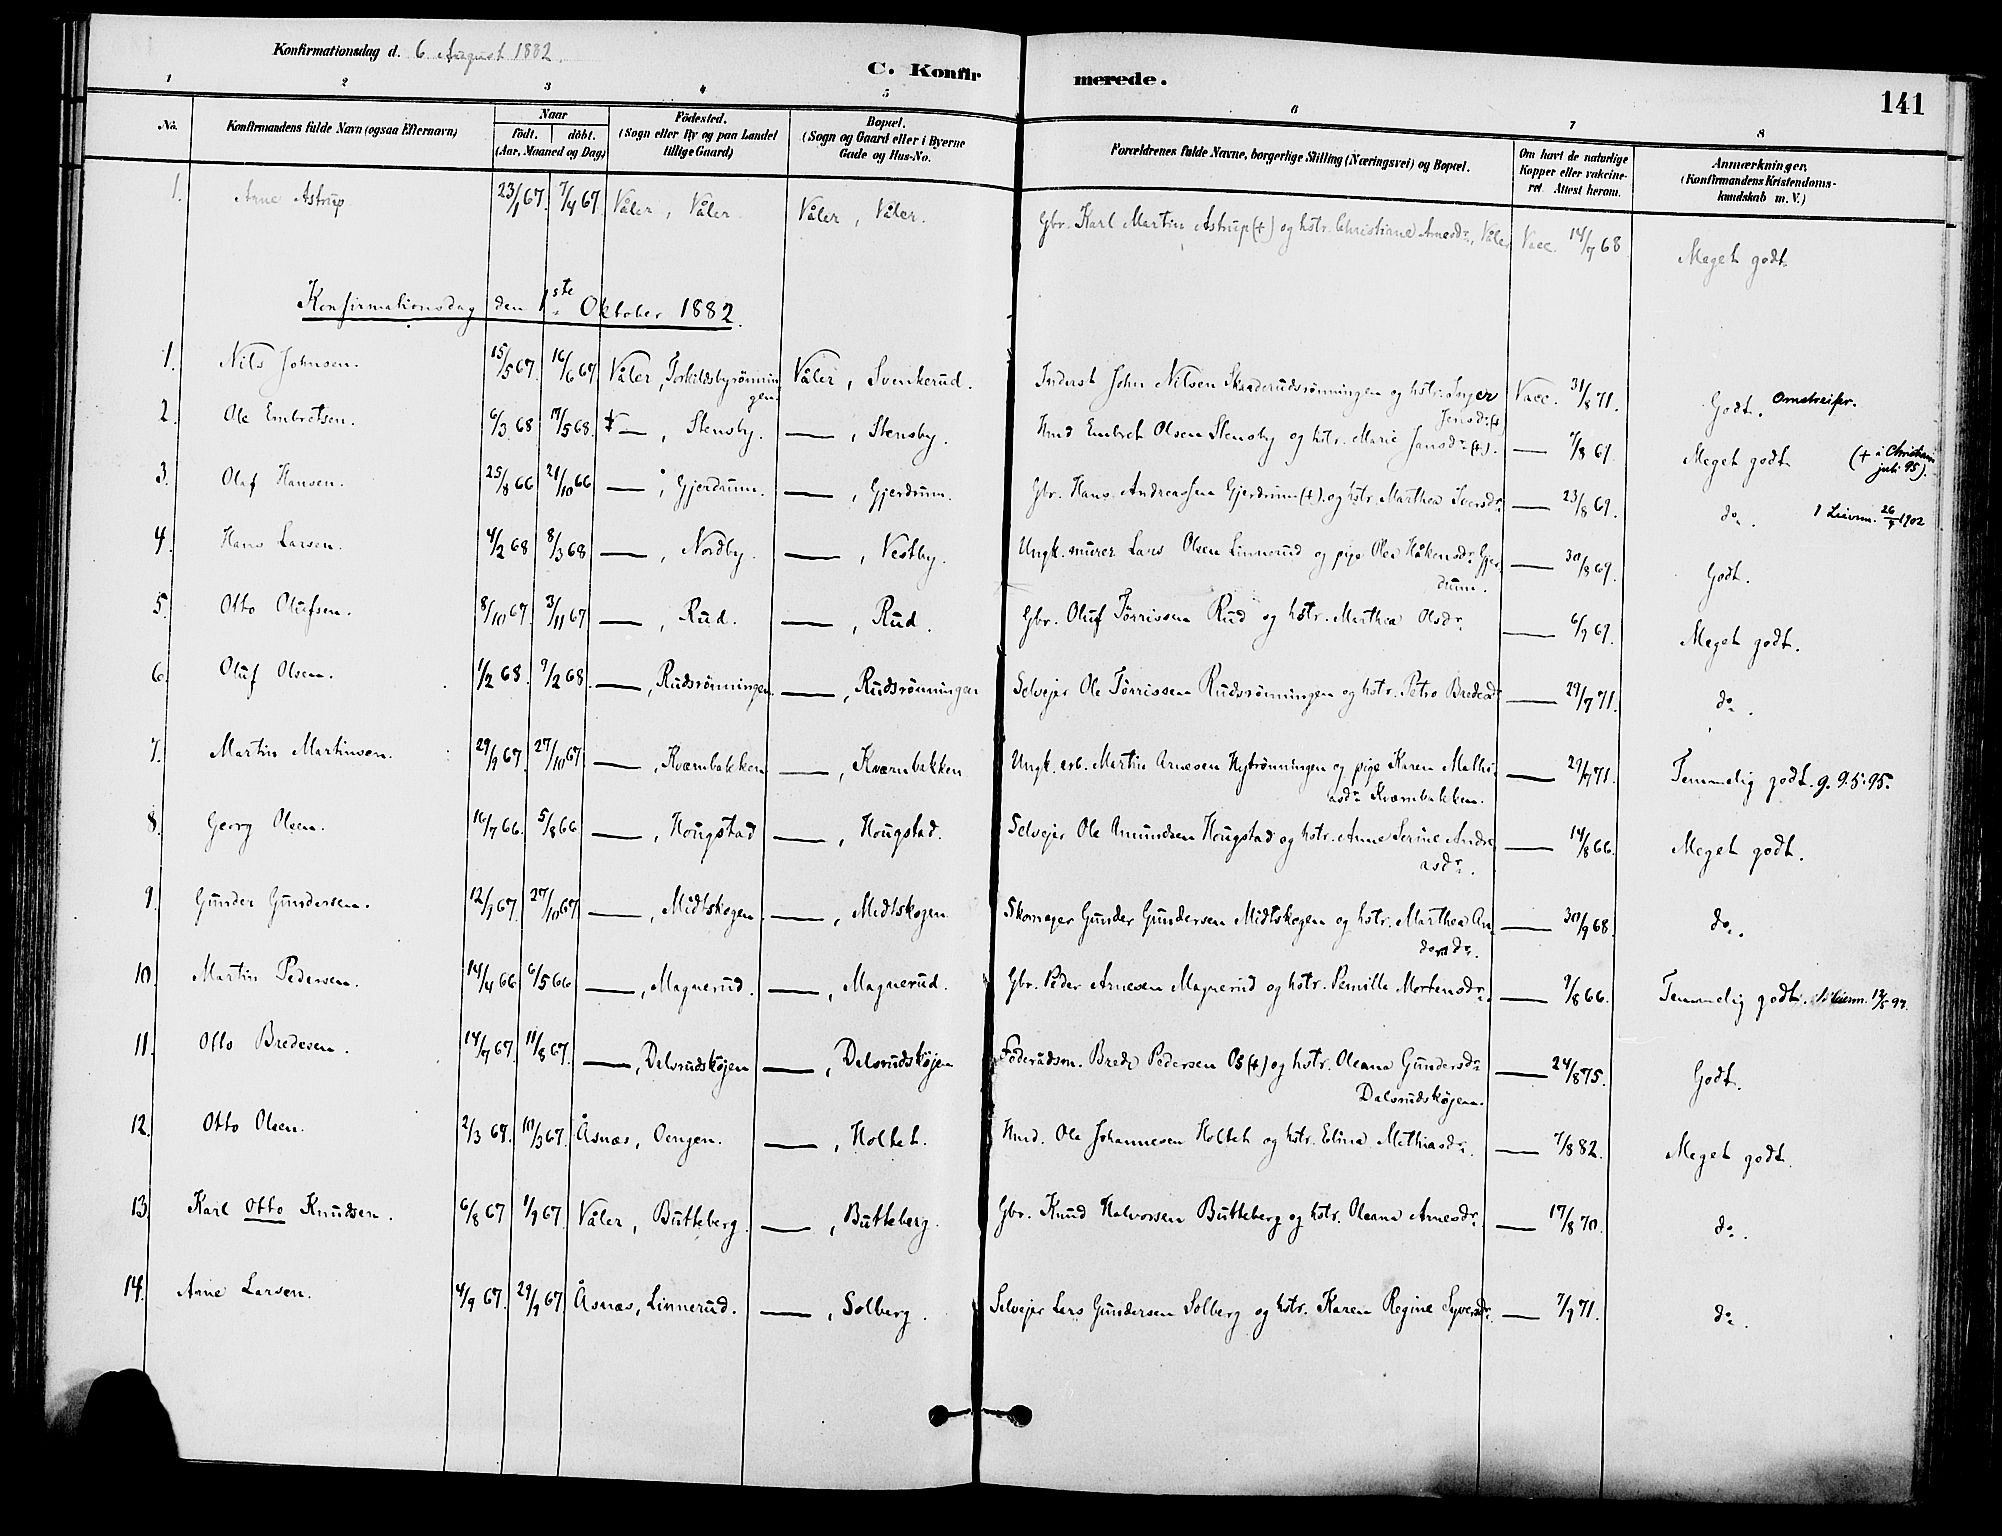 Konfirmationsdag d. 6 August 1882.
C. Konfirmerede.
141
1 2 3 4 5 6 7 8
No. Konfirmandens fulde Navn (ogsaa Efternavn) Naar födt. döbt. (Aar, Maaned og Dag) Födested. (Sogn eller By og paa Landet tillige Gaard) Bopæl. (Sogn og Gaard eller i Byerne Gade og Hus-No. Forældrenes fulde Navne, borgerlige Stilling (Næringsvei) og Bopæl. Om havt de naturlige Kopper eller vakcineret. Attest herom. Anmærkninger. (Konfirmandens Kristendomskundskab m. V.)
1. Arne Astrup 23/1 67. 7/4 67 Våler, Våler. Våler, Våler. Gbr. Karl Martin Astrup (+) og hstr. Christiane Arnesdr., Våler Vacc. 14/7 68 Meget godt
Konfirmationsdag den 1ste Oktober 1882.
1. Nils Johnsen. 15/5 67. 16/6 67. Våler, Torkildsbyrönningen Våler, Svenkerud. Inderst John Nilsen Skaaderudsrönningen og hstr. Inger Jensdr. (+) Vacc. 31/8 71. Godt. Omstreifer.
2. Ole Embretsen. 6/3 68 17/5 68. — , Stensby. — , Stensby. Hmd Embret Olsen Stensby og hstr. Marie Jansdr. (+). — 7/8 69. Meget godt (+ i Christiania juli 95).
3. Olaf Hansen. 25/8 66 21/10 66 — , Gjerdrum. — , Gjerdrum. Gbr. Hans Andreassen Gjerdrum (+) og hstr. Marthea Iversdr. — 23/8 69. do.
4. Hans Larsen. 4/2 68 8/3 68 — , Nordby. — , Vestby. Ungk. murer Lars Olsen Linnerud og pige Olea Håkensdr. Gjerdrum. — 30/8 69. Godt.
5. Otto Olufsen. 8/10 67. 3/11 67 — , Rud. — , Rud. Gbr. Oluf Törrissen Rud og hstr. Marthea Olsdr. — 6/9 69. Meget godt.
6. Oluf Olsen. 1/2 68. 9/2 68. — , Rudsrönningen — , Rudsrönningen Selvejer Ole Törrissen Rudsrönningen og hstr. Petro Bredesdr. — 29/7 71. do.
7. Martin Martinsen. 29/9 67. 27/10 67 — , Kværnbakken — , Kværnbakken Ungk. arb. Martin Arnesen Nyrönningen og pige Karen Mathiasdr. Kværnbakken. — 29/7 71. Temmelig godt. g. 9.5.95.
8. Georg Olsen. 16/7 66. 5/8 66 — , Hougstad — , Hougstad. Selvejer Ole Amundsen Hougstad og hstr. Anne Serine Andreasdr. — 14/8 66. Meget godt.
9. Gunder Gundersen. 12/9 67. 27/10 67 — , Midtskogen. — , Midtskogen Skomager Gunder Gundersen Midtskogen og hstr. Marthea Andersdr. — 30/9 68. do.
10. Martin Pedersen. 14/4 66 6/5 66 — , Magnerud. — , Magnerud. Gbr. Peder Arnesen Magnerud og hstr. Pernille Mortensdr. — 9/8 66. Temmelig godt.
11. Otto Bredesen. 14/7 67. 11/8 67. — , Dalsrudskøjen — , Dalsrudskøjen Föderådsm. Brede Pedersen Os (+) og hstr. Oleana Gundersdr. Dalsrudskøjen. — 24/8 75. Godt.
12. Otto Olsen. 2/3 67. 10/3 67. Åsnæs, Oengen. — , Holtet. Hmd. Ole Johannesen Holtet og hstr. Elina Mathiasdr. — 7/8 82. Meget godt.
13. Karl Otto Knudsen. 6/8 67 1/9 67. Våler, Butteberg. — , Butteberg. Gbr. Knud Halvorsen Butteberg og hstr. Oleana Arnesdr. — 17/8 70. do.
14. Arne Larsen. 4/9 67. 29/9 67 Åsnæs, Linnerud. — , Solberg. Selvejer Lars Gundersen Solberg og hstr. Karen Regine Syversdr. — 7/9 71. do.